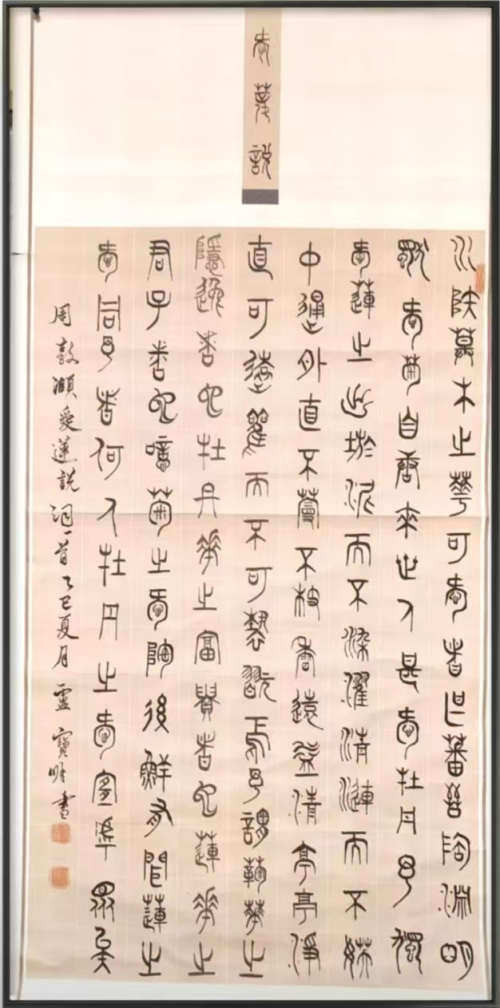 愛蓮說
水陸草木之華可愛者甚蕃晉陶淵明
獨愛菊自唐來世人甚愛牡丹予獨
愛蓮之出淤泥而不染濯清漣而不妖
中通外直不蔓不枝香遠益清亭亭淨
直可遠觀而不可褻翫焉予謂菊華之
隱逸者也牡丹華之富貴者也蓮華之
君子者也噫菊之愛陶後鮮有聞蓮之
愛同予者何人牡丹之愛宜乎眾矣
周敦頤愛蓮說詞一首乙巳夏月靈寶書